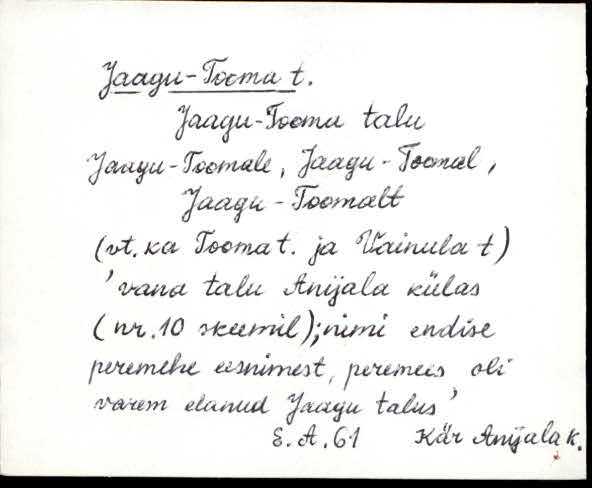 Jaagu-Tooma t.
Jaagu-Tooma talu
Jaagu-Toomale, Jaagu-Toomal,
Jaagu-Toomalt
(vt. ka Tooma t. ja Vainula t)
'vana talu Anijala külas
(nr. 10 skeemil); nimi endise
peremehe eesnimest, peremees oli
varem elanud Jaagu talus'
E. A. 61 Kär Anijala k.